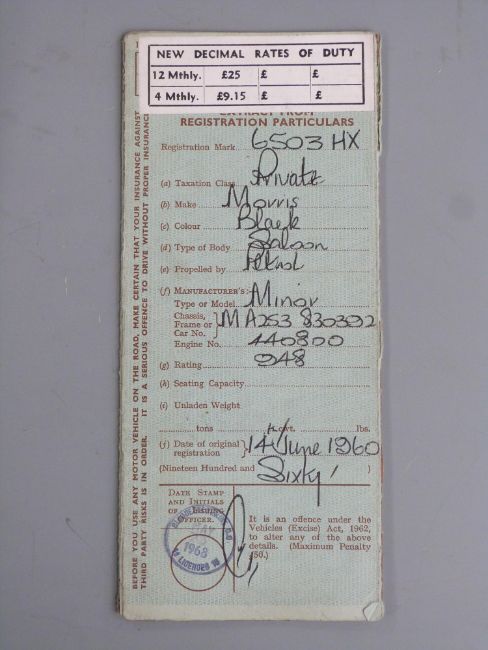 NEW DECIMAL RATES OF DUTY
12 Mthly. £25 £ £
4 Mthly. £9.15 £ £
EXTRACT FROM
REGISTRATION PARTICULARS
Registration Mark 6503 HX
(a) Taxation Class Private
(b) Make Morris
(c) Colour Black
(d) Type of Body Saloon
(e) Propelled by Petrol
(f) MANUFACTURER'S:—
Type or Model Minor
Chassis, Frame or Car No. } MA2S3 830302
Engine No. 440800
(g) Rating 948
(h) Seating Capacity
(i) Unladen Weight
tons cwt. lbs.
(j) Date of original registration } 14 June 1960
(Nineteen Hundred and Sixty )
DATE STAMP AND INITIALS OF ISSUING OFFICER.
MAY
1968
It is an offence under the
Vehicles (Excise) Act, 1962,
to alter any of the above
details. (Maximum Penalty
£50.)
BEFORE YOU USE ANY MOTOR VEHICLE ON THE ROAD, MAKE CERTAIN THAT YOUR INSURANCE AGAINST
THIRD PARTY RISKS IS IN ORDER. IT IS A SERIOUS OFFENCE TO DRIVE WITHOUT PROPER INSURANCE